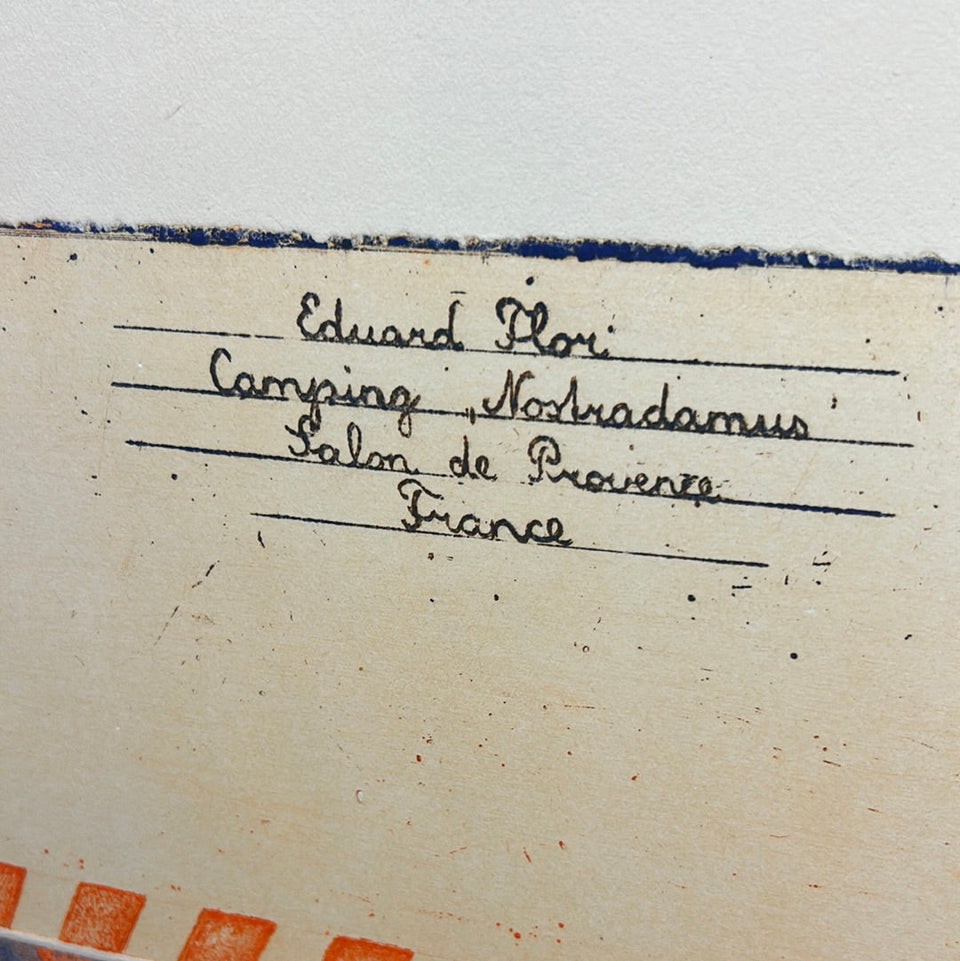 Eduard Flori
Camping ,Nostradamus'
Salon de Provence
France